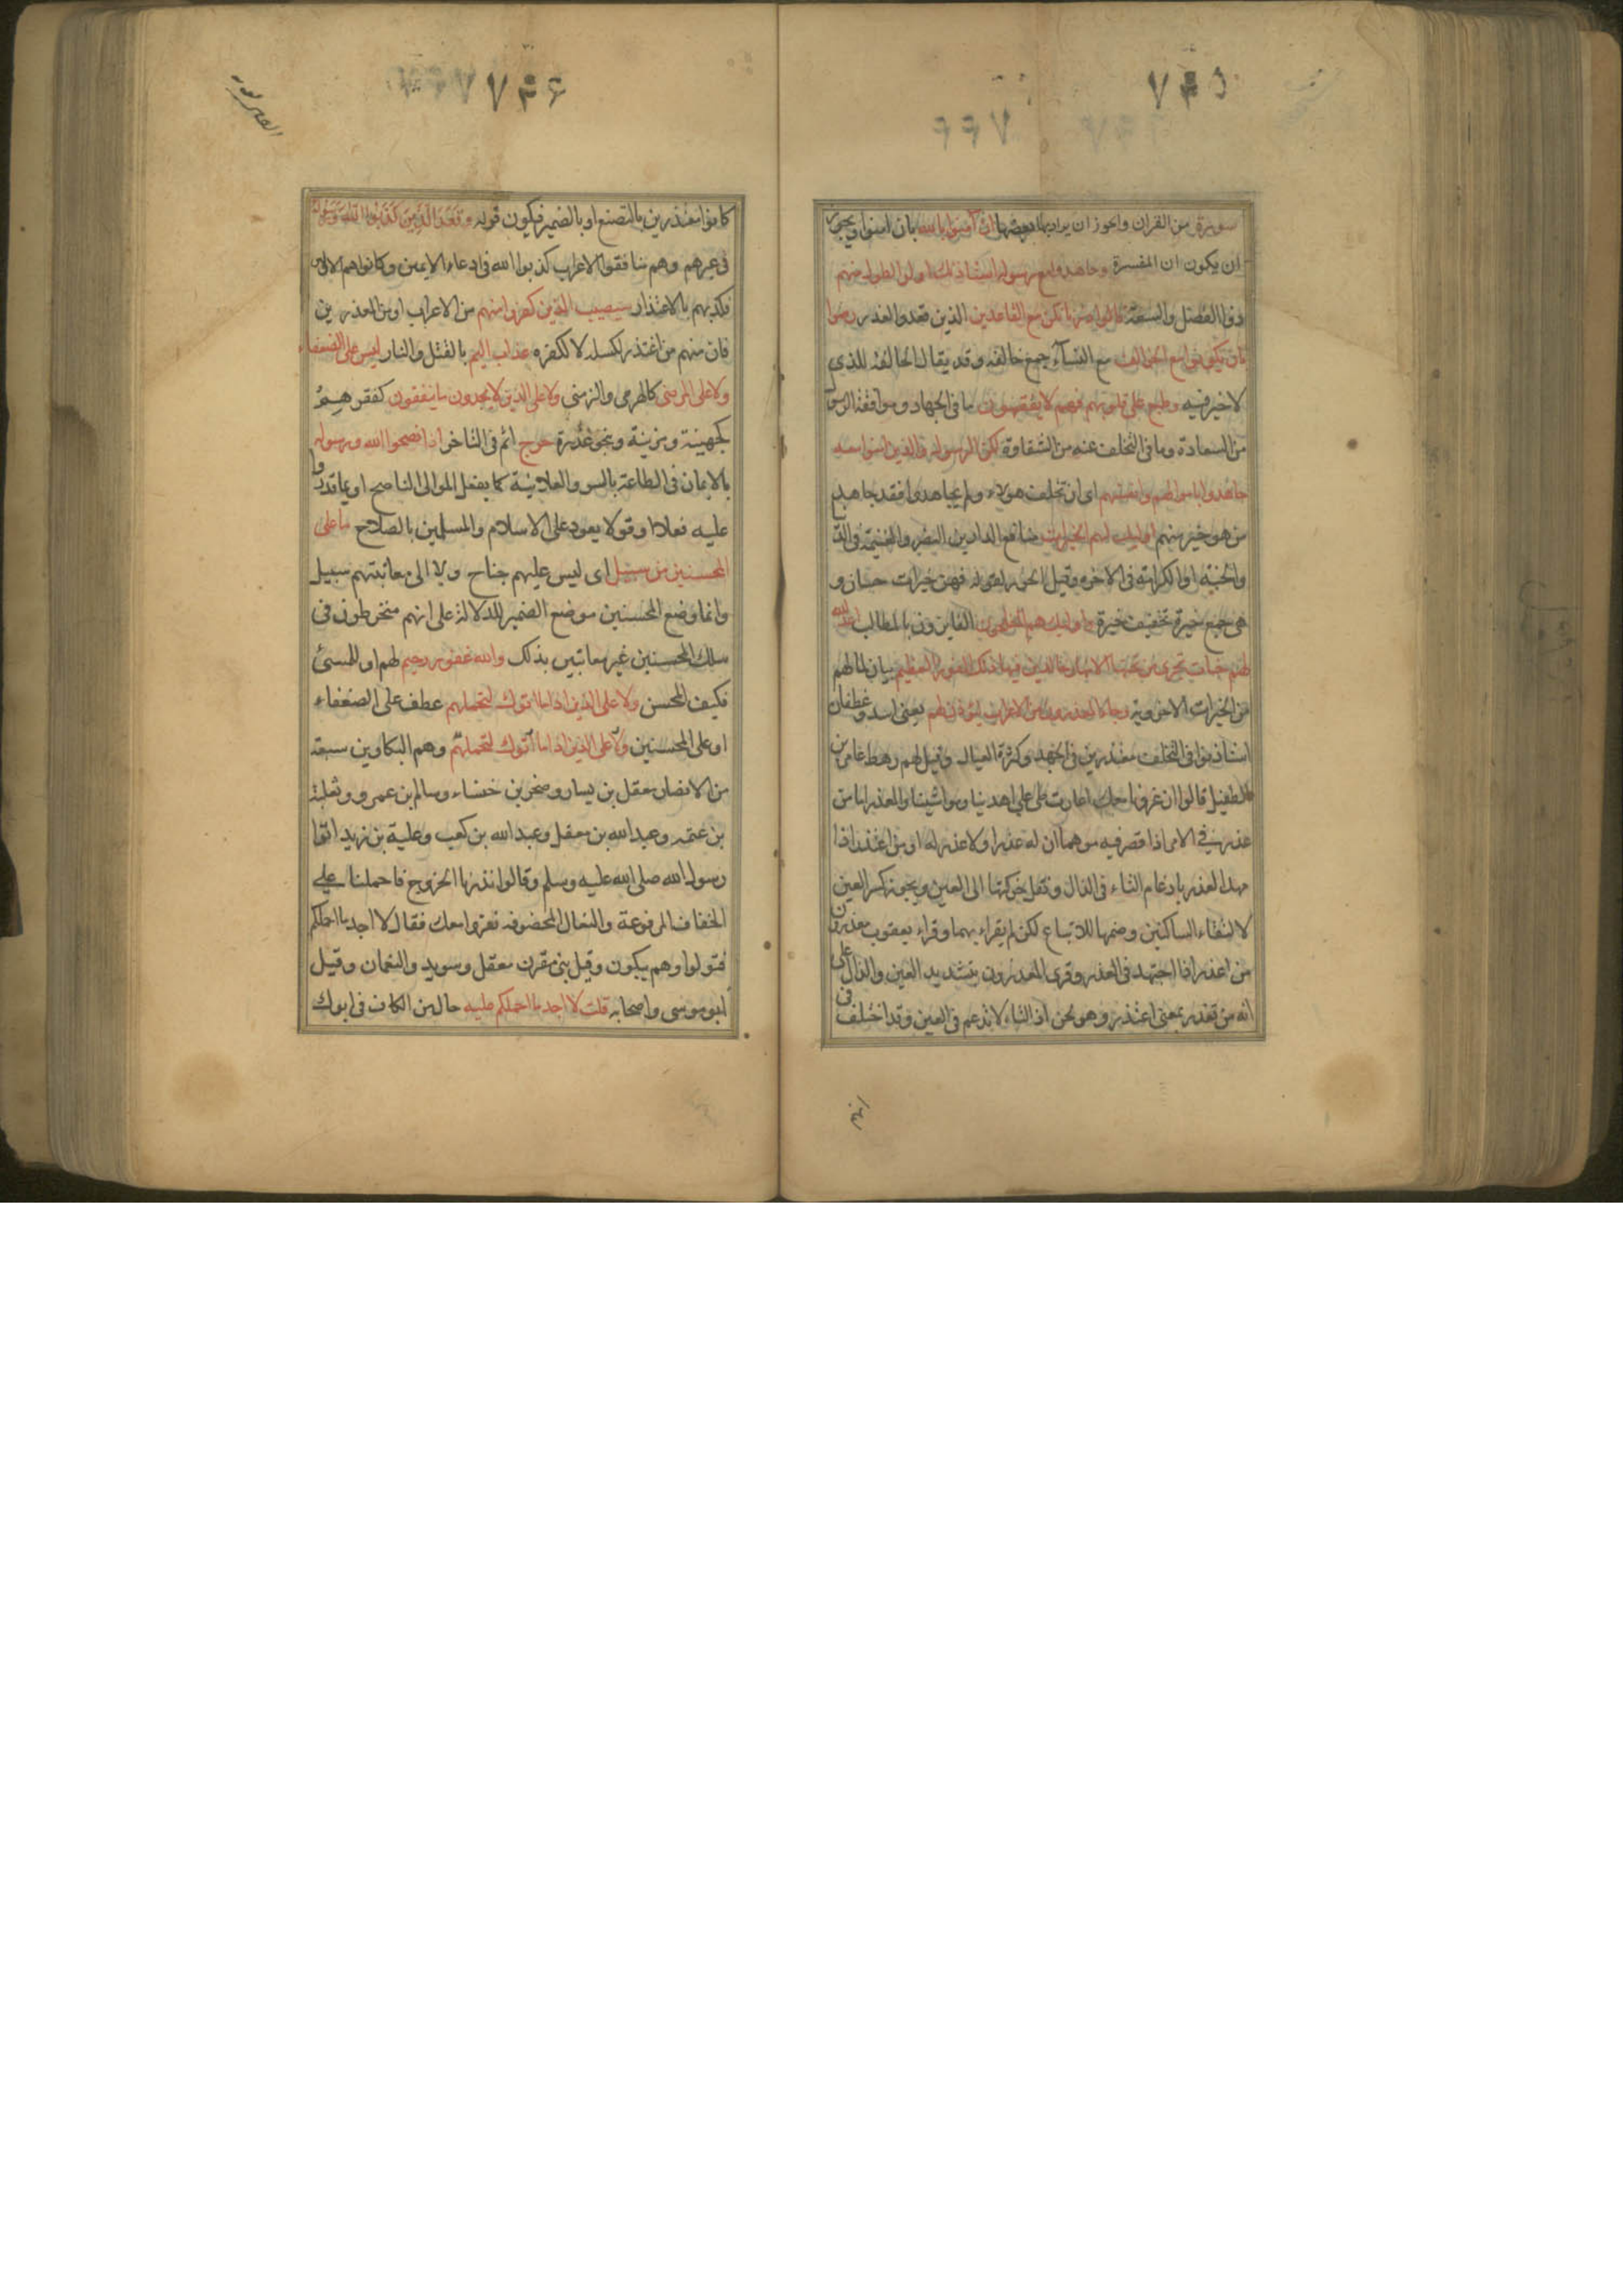 ٧٤٥
سورة من القران ويجوز ان يراد بها بعضها ان آمنوا بالله بان امنوا ويجوز
ان يكون ان المفسرة وجاهدوا مع رسوله استأذنك اولوا الطول منهم
ذووا الفضل والسعة وقالوا ذرنا نكن مع القاعدين الذين قعدوا لعذر رضوا
بان يكونوا مع الخوالف مع النسآء جمع خالفه وقد يقال الخالفة للذي
لا خير فيه وطبع على قلوبهم فهم لا يفقهون ما فى الجهاد وموافقة الرسول
من السعادة وما فى التخلف عنه من الشقاوة لكن الرسول والذين امنوا معه
جاهدوا باموالهم وانفسهم اى ان تخلف هولاء ولم يجاهدوا فقد جاهد
من هو خير منهم اوليك لهم الخيرات منافع الدارين النصر والغنيمة فى الدنيا
والجنة والكرامة فى الاخره وقيل الحور لقوله فيهن خيرات حسان و
هى جمع خيرة تخفيف خيرة واوليك هم المفلحون الفايزون بالمطالب اعد الله
لهم جنات تجرى من تحتها الانهار خالدين فيها ذلك الفوز العظيم بيان لما لهم
من الخيرات الاخروية وجاء المعذرون من الاعراب ليؤذن لهم يعنى اسد وغطفان
استاذنوا فى التخلف معتذرين فى الجهد وكثرة العيال وقيل هم رهط عامر بن
الطفيل قالوا ان غزونا معك اغارت طى على اهلينا ومواشينا والمعذر اما من
عذر فى الامر اذا قصر فيه موهما ان له عذرا ولا عذر له او من اعتذر اذا
مهد العذر بادغام التاء فى الذال ونقل حركتها الى العين ويجوز كسر العين
لالتقاء الساكنين وضمها للاتباع لكن لم يقراء بهما وقراء يعقوب معذرون
من اعذر اذا اجتهد فى العذر وقرى المعذرون بتشديد العين والذال على
انه من تعذر بمعنى اعتذر وهو لحن اذ التاء لا تدغم فى العين وقد اختلف فى
انهم
٧٤٦
كانوا معتذرين بالتصنع او بالصحة فيكون قوله وقعد الذين كذبوا الله ورسوله
فى غيرهم وهم منافقوا الاعراب كذبوا الله فى ادعاء الايمن وكانوا هم الاولين
فكذبهم بالاعتذار سيصيب الذين كفروا منهم من الاعراب او من المعذرين
فان منهم من اعتذر لكسله لا لكفره عذاب اليم بالقتل والنار ليس على الضعفاء
ولا على المرضى كالهرمى والزمنى ولا على الذين لا يجدون ما ينفقون كفقرهم
كجهينة ومزينة وبنى عذرة حرج اثم فى التاخر اذا نصحوا الله ورسوله
بالايمان فى الطاعة بالسر والعلانية كما يفعل الموالى الناصح او بما قدروا
عليه فعلا او قولا يعود على الاسلام والمسلمين بالصلاح ما على
المحسنين من سبيل اى ليس عليهم جناح ولا الى معاتبتهم سبيل
وانما وضع المحسنين موضع الضمير للدلالة على انهم منخرطون فى
سلك المحسنين غير معاتبين بذلك والله غفور رحيم لهم او للمسئ
فكيف المحسن ولا على الذين اذا ما اتوك لتحملهم عطف على الضعفاء
او على المحسنين ولا على الذين اذا ما أتوك لتحملهم وهم البكاوين سبعة
من الانصار معقل بن يسار وصخر بن خنساء وسالم بن عمرو وثعلبة
بن عنمه وعبد الله بن معقل وعبد الله بن كعب وعلية بن زيد اتوا
رسول الله صلى الله عليه وسلم وقالوا نذرنا الخروج فاحملنا على
الخفاف المرقوعة والنعال المخصوفه نغزوا معك فقال لا اجد ما احملكم
فتولوا وهم يبكون وقيل بنى مقرن معقل وسويد والنعمان وقيل
ابو موسى واصحابه قلت لا اجد ما احملكم عليه حال من الكاف فى اتوك